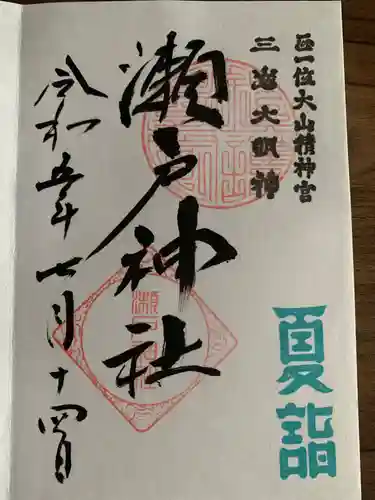 正一位大山積神宮
三嶌大明神
瀬戸神社
令和五年七月十四日
夏詣